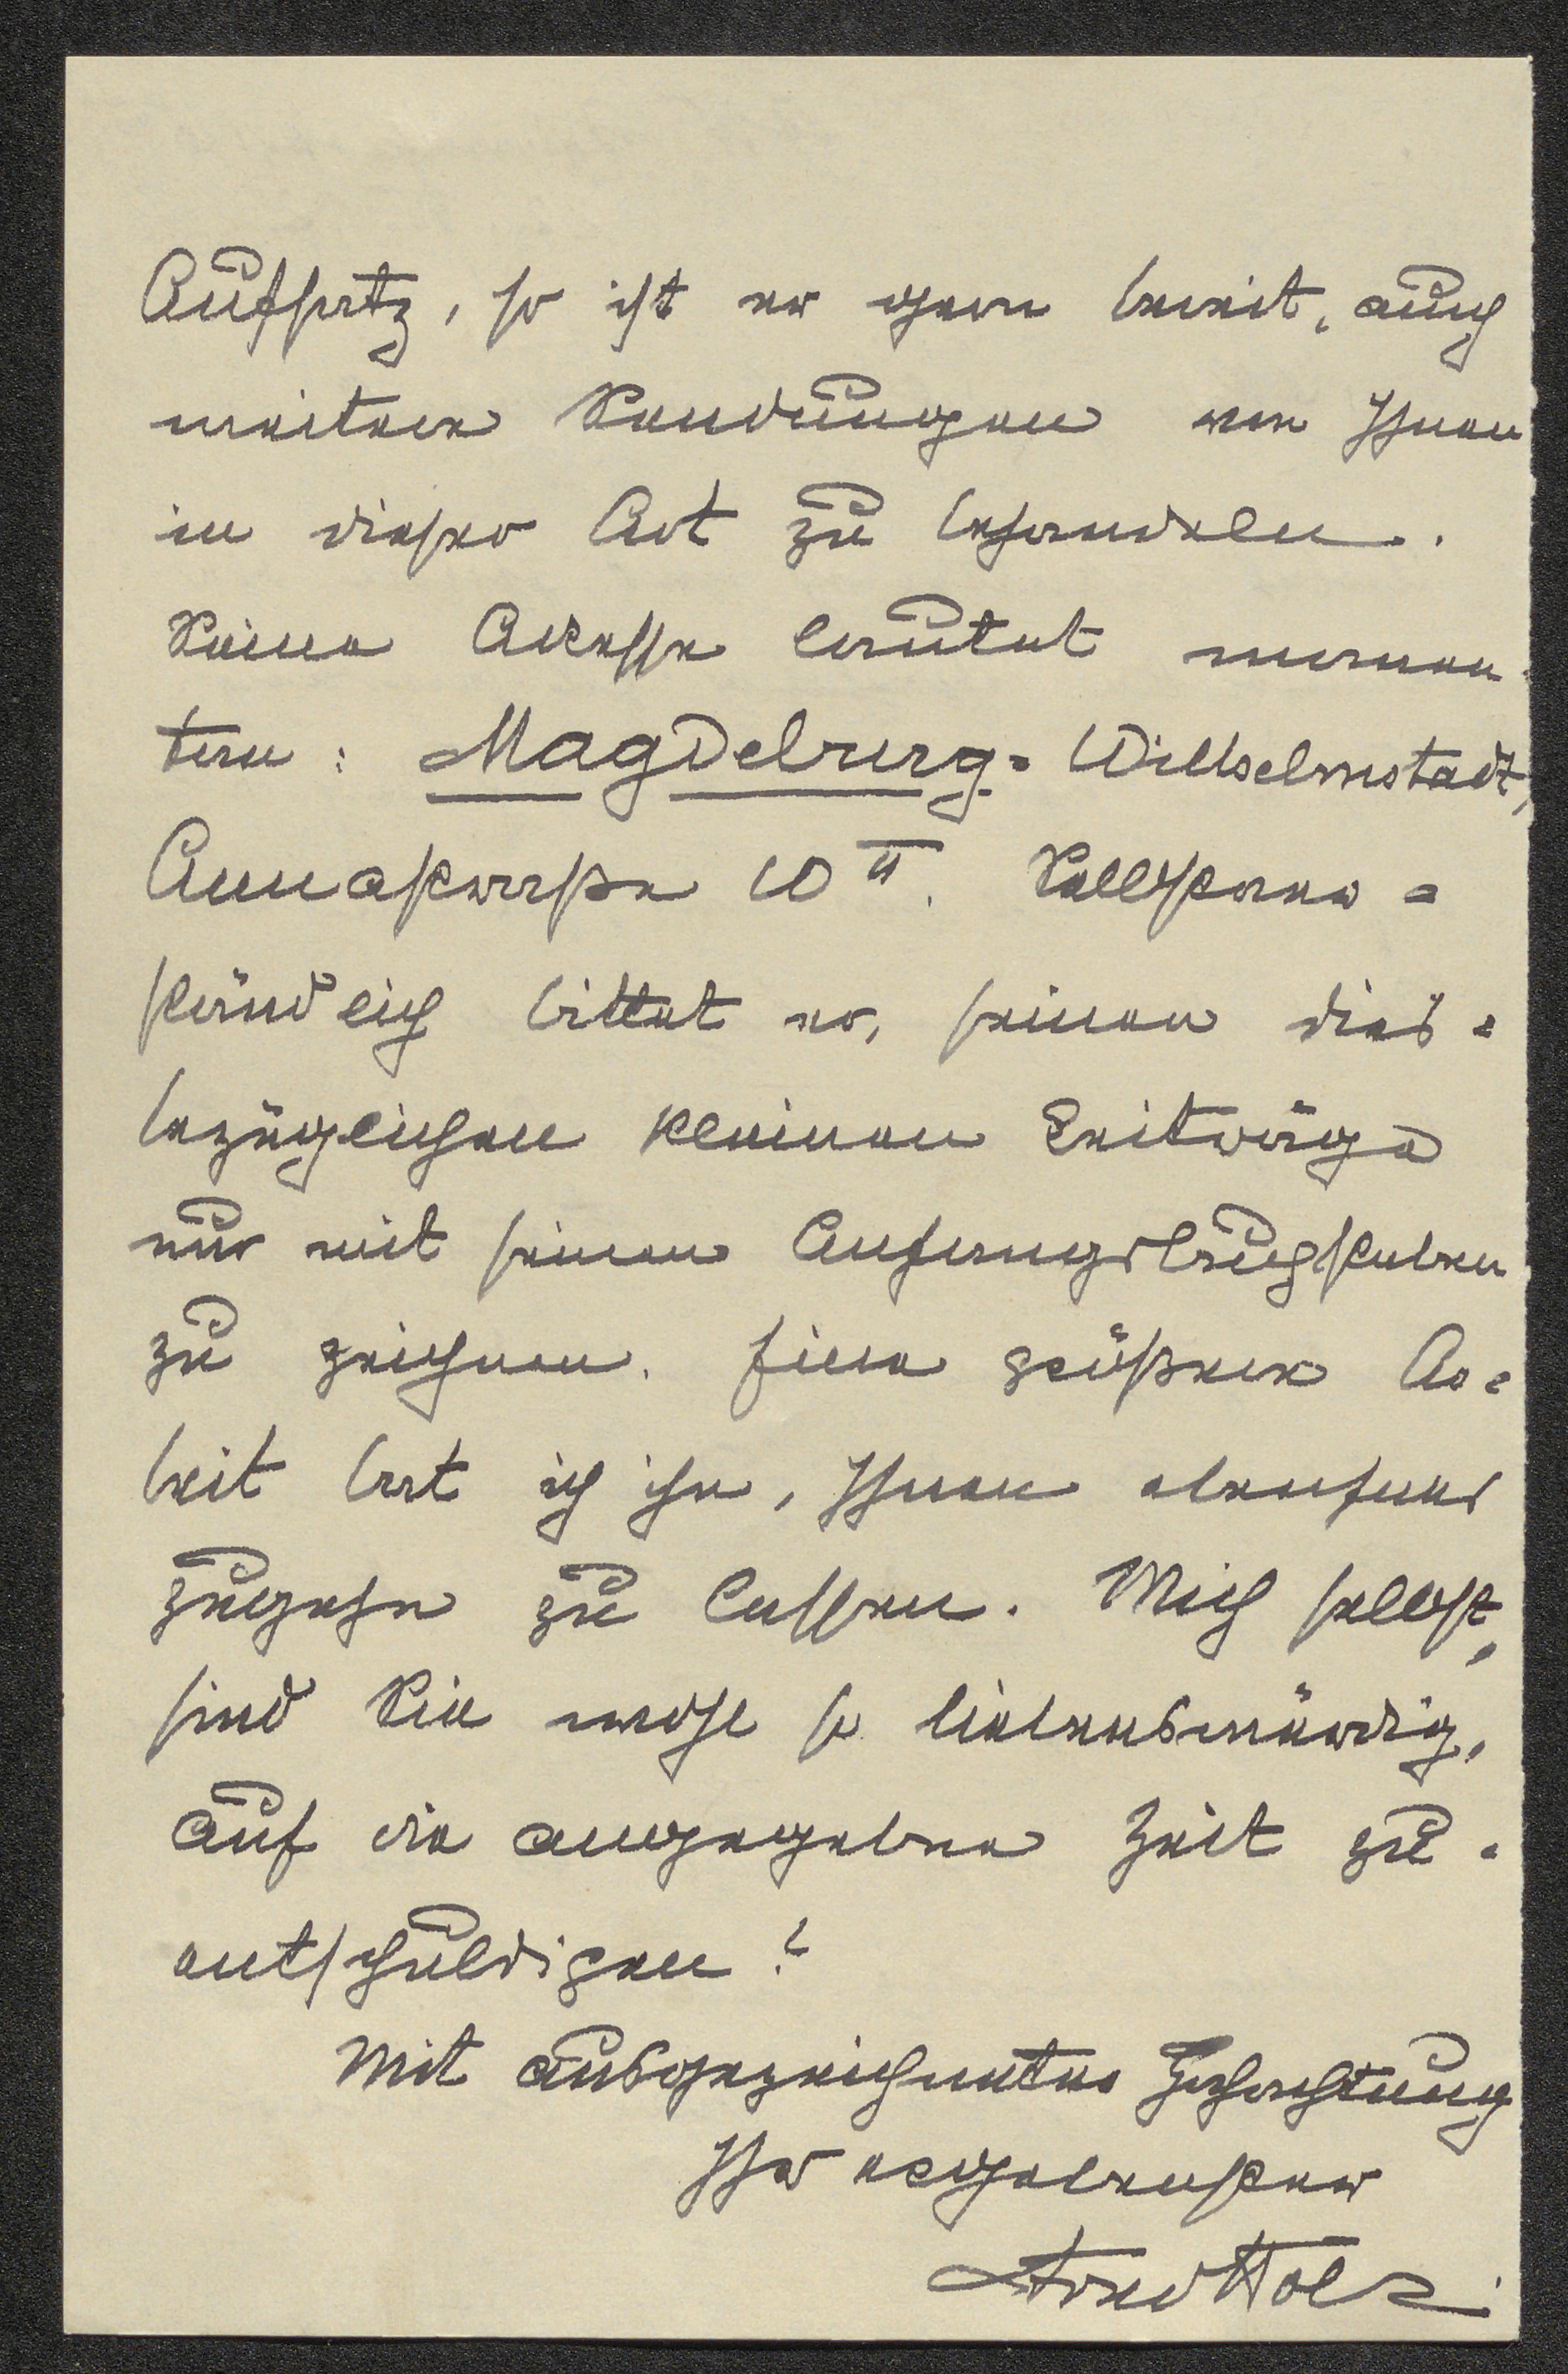 Aufsatz, so ist er gern bereit, auch
weitere Sendungen von Ihnen
in dieser Art zu behandeln.
Seine Adresse lautet momen-
tan: Magdeburg-Wilhelmstadt,
Annastrasse 10 II. Selbstver-
ständlich bittet er, seinen dies-
bezüglichen kleinen Beiträge
nur mit seinen Anfangsbuchstaben
zu zeichnen. Eine größere Ar-
beit bat ich ihn, Ihnen
zugehn zu lassen. Mich selbst,
sind Sie wohl so liebenswürdig,
auf die angegebene Zeit zu
entschuldigen?
Mit ausgezeichneter Hochachtung
Ihr ergebenster
Arno Holz.